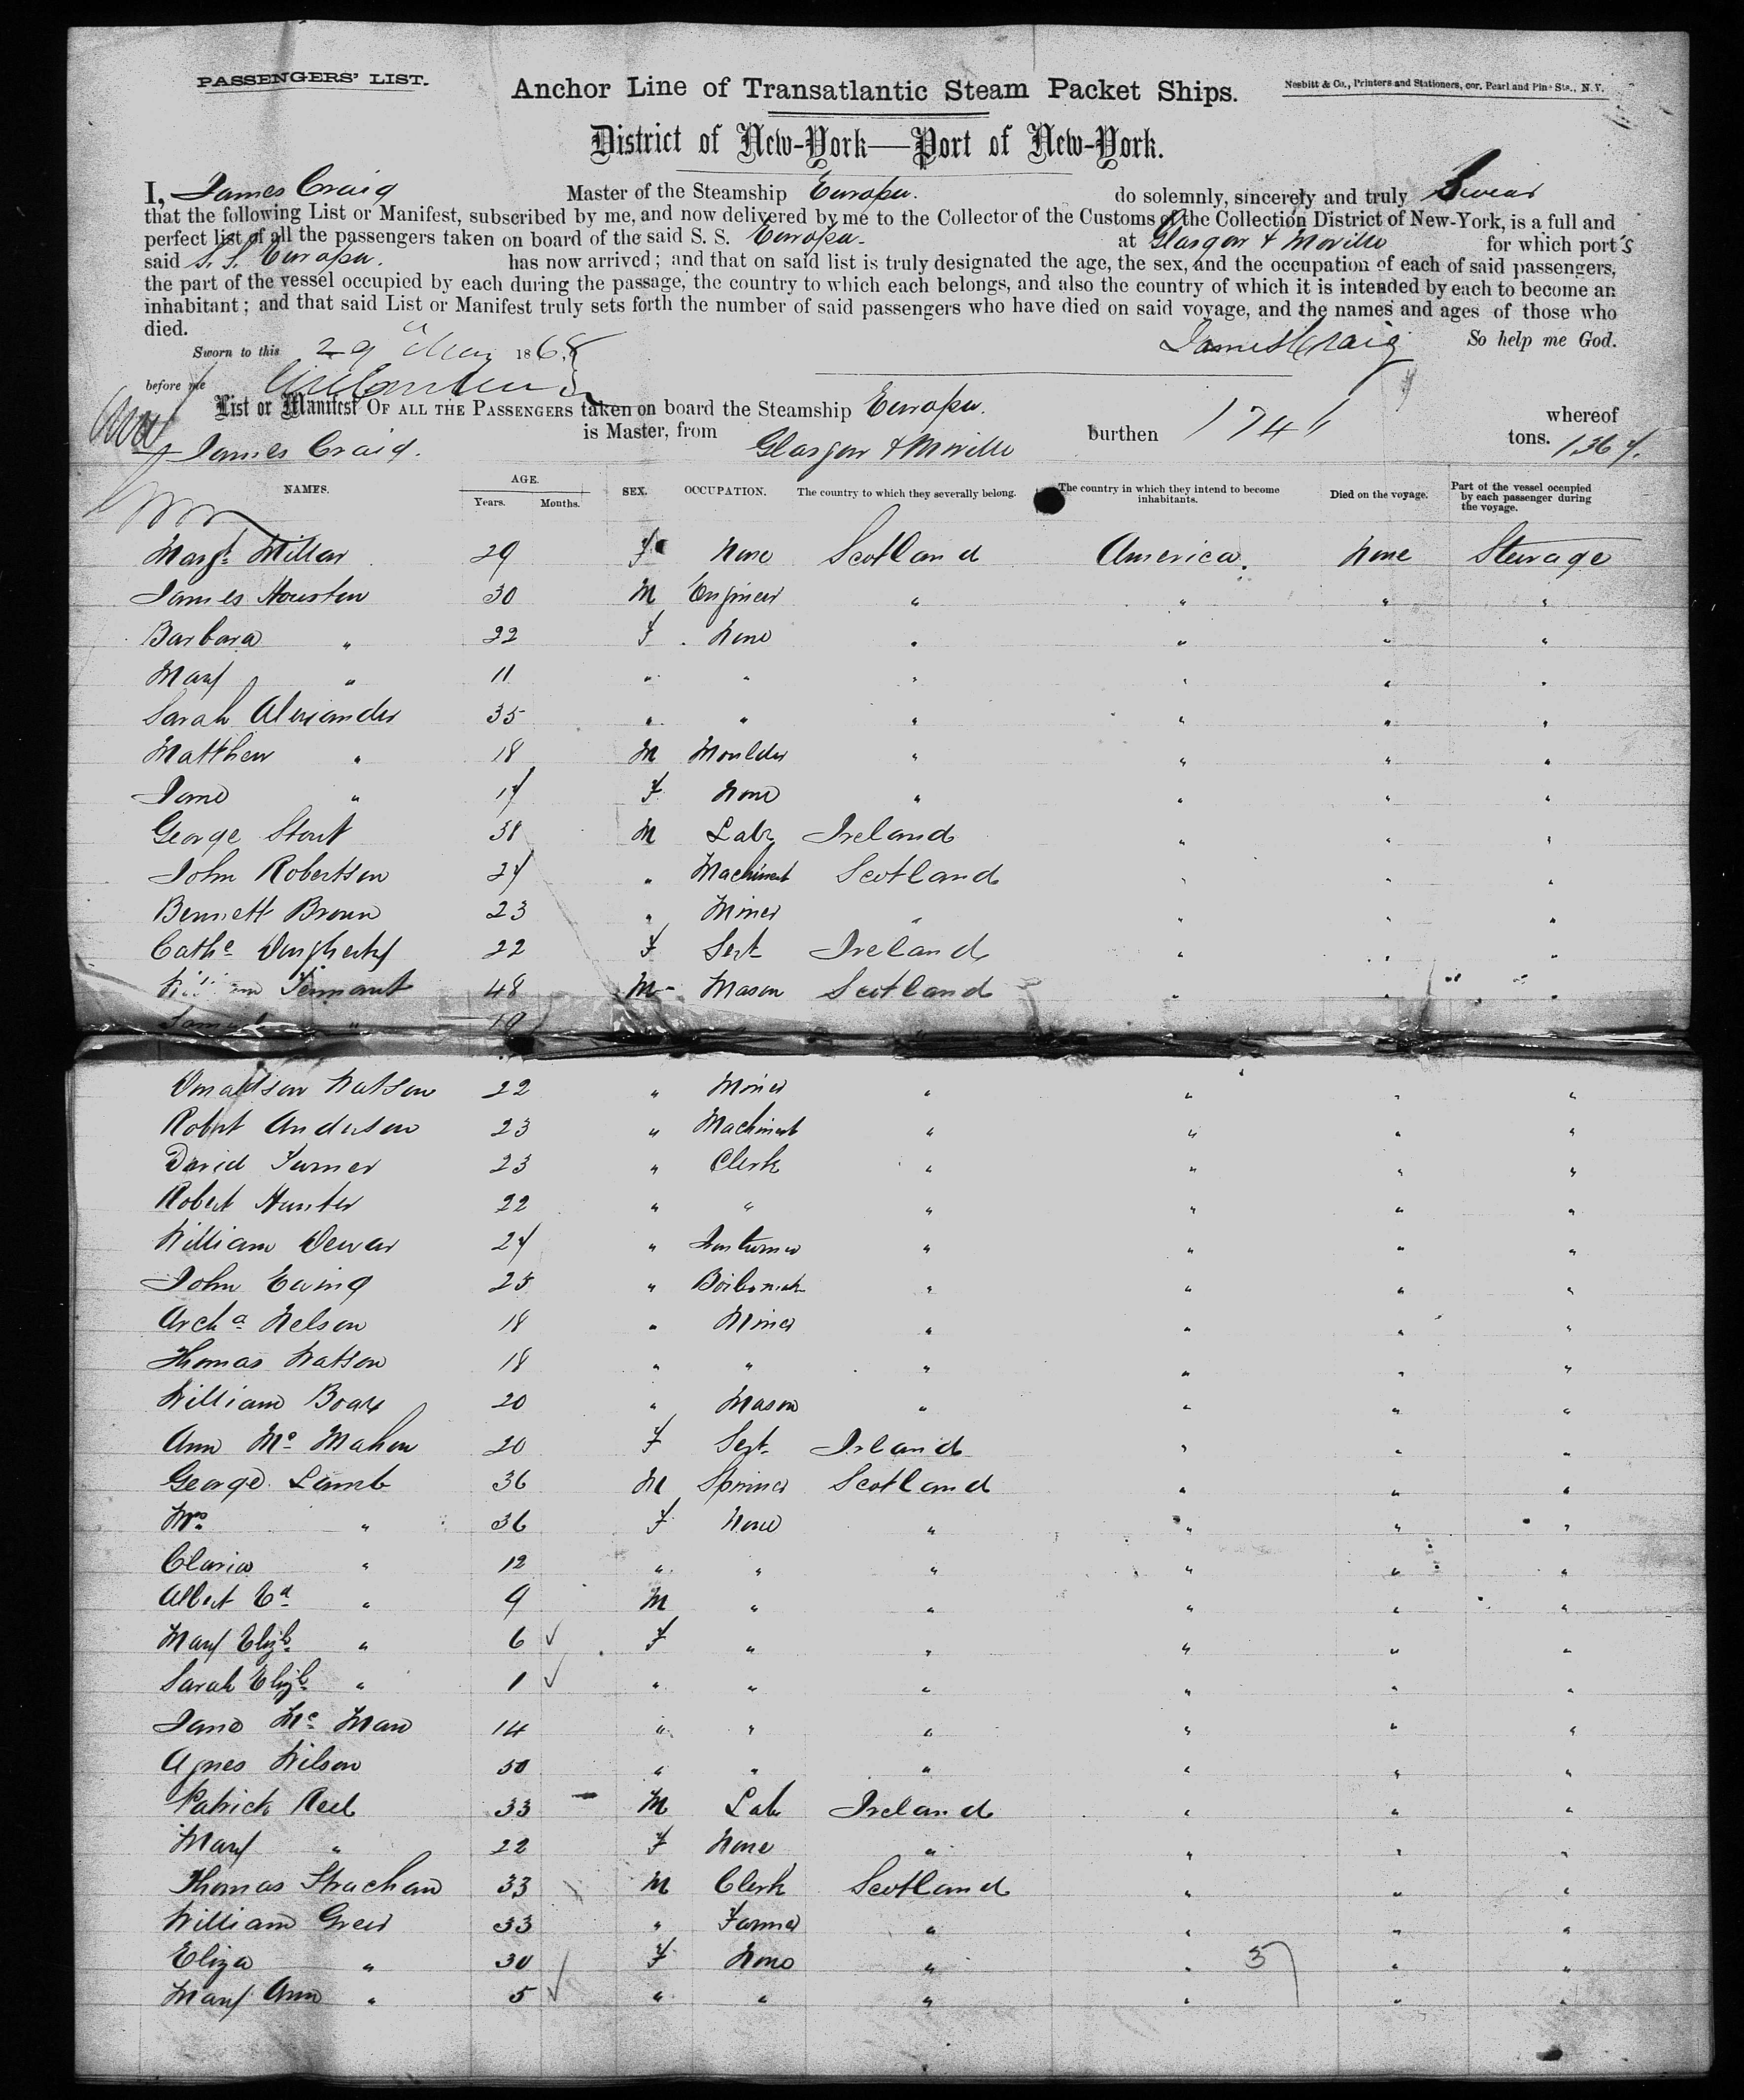 PASSENGERS' LIST.
Anchor Line of Transatlantic Steam Packet Ships.
Nesbitt & Co., Printers and Stationers, cor. Pearl and Pine Sts., N. Y.
District of New-York—Port of New-York.
I, James Craig Master of the Steamship Europa. do solemnly, sincerely and truly Swear
that the following List or Manifest, subscribed by me, and now delivered by me to the Collector of the Customs of the Collection District of New-York, is a full and
perfect list of all the passengers taken on board of the said S. S. Europa. at Glasgow & Moville for which port's
said S. S. Europa. has now arrived; and that on said list is truly designated the age, the sex, and the occupation of each of said passengers,
the part of the vessel occupied by each during the passage, the country to which each belongs, and also the country of which it is intended by each to become an
inhabitant; and that said List or Manifest truly sets forth the number of said passengers who have died on said voyage, and the names and ages of those who
died. James Craig So help me God.
Sworn to this 29 May 1868
before me
List or Manifest OF ALL THE PASSENGERS taken on board the Steamship Europa. whereof
James Craig. is Master, from Glasgow & Moville burthen 174 tons. 1367.
NAMES. AGE. Years. Months. SEX. OCCUPATION. The country to which they severally belong. The country in which they intend to become inhabitants. Died on the voyage. Part of the vessel occupied by each passenger during the voyage.
Margt. Millar 29 F None Scotland America. None Steerage
James Houston 30 M Engineer " " " "
Barbara " 22 F None " " " "
Mary " 11 " " " " " "
Sarah Alexander 35 " " " " " "
Matthew " 18 M Moulder " " " "
Jane " 17 F None " " " "
George Stout 38 M Labr Ireland " " "
John Robertson 24 " Machinest Scotland " " "
Bennett Brown 23 " Miner " " " "
Cathe Dougherty 22 F Sert Ireland " " "
Tennant 48 M Mason Scotland " " "
" 19
Donaldson Watson 22 " Miner " " " "
Robert Anderson 23 " Machinest " " " "
David Turner 23 " Clerk " " " "
Robert Hunter 22 " " " " " "
William Dewar 24 " Iron turner " " " "
John Ewing 25 " Boilermak " " " "
Archd Nelson 18 " Miner " " " "
Thomas Watson 18 " " " " " "
William Boax 20 " Mason " " " "
Ann Mc Mahon 20 F Sert Ireland " " "
George Lamb 36 M Spinner Scotland " " "
Mrs " 36 F None " " " "
Claria " 12 " " " " " "
Albert Ed " 9 M " " " " "
Mary Elizb " 6 ✓ F " " " " "
Sarah Elizb " 1 ✓ " " " " " "
Jane Mc Maw 14 " " " " " "
Agnes Wilson 50 " " " " " "
Patrick Reel 33 M Lab Ireland " " "
Mary " 22 F None " " " "
Thomas Strachan 33 M Clerk Scotland " " "
William Greer 33 " Farmer " " " "
Eliza " 30 F None " " " "
Mary Ann " 5 ✓ " " " " " "